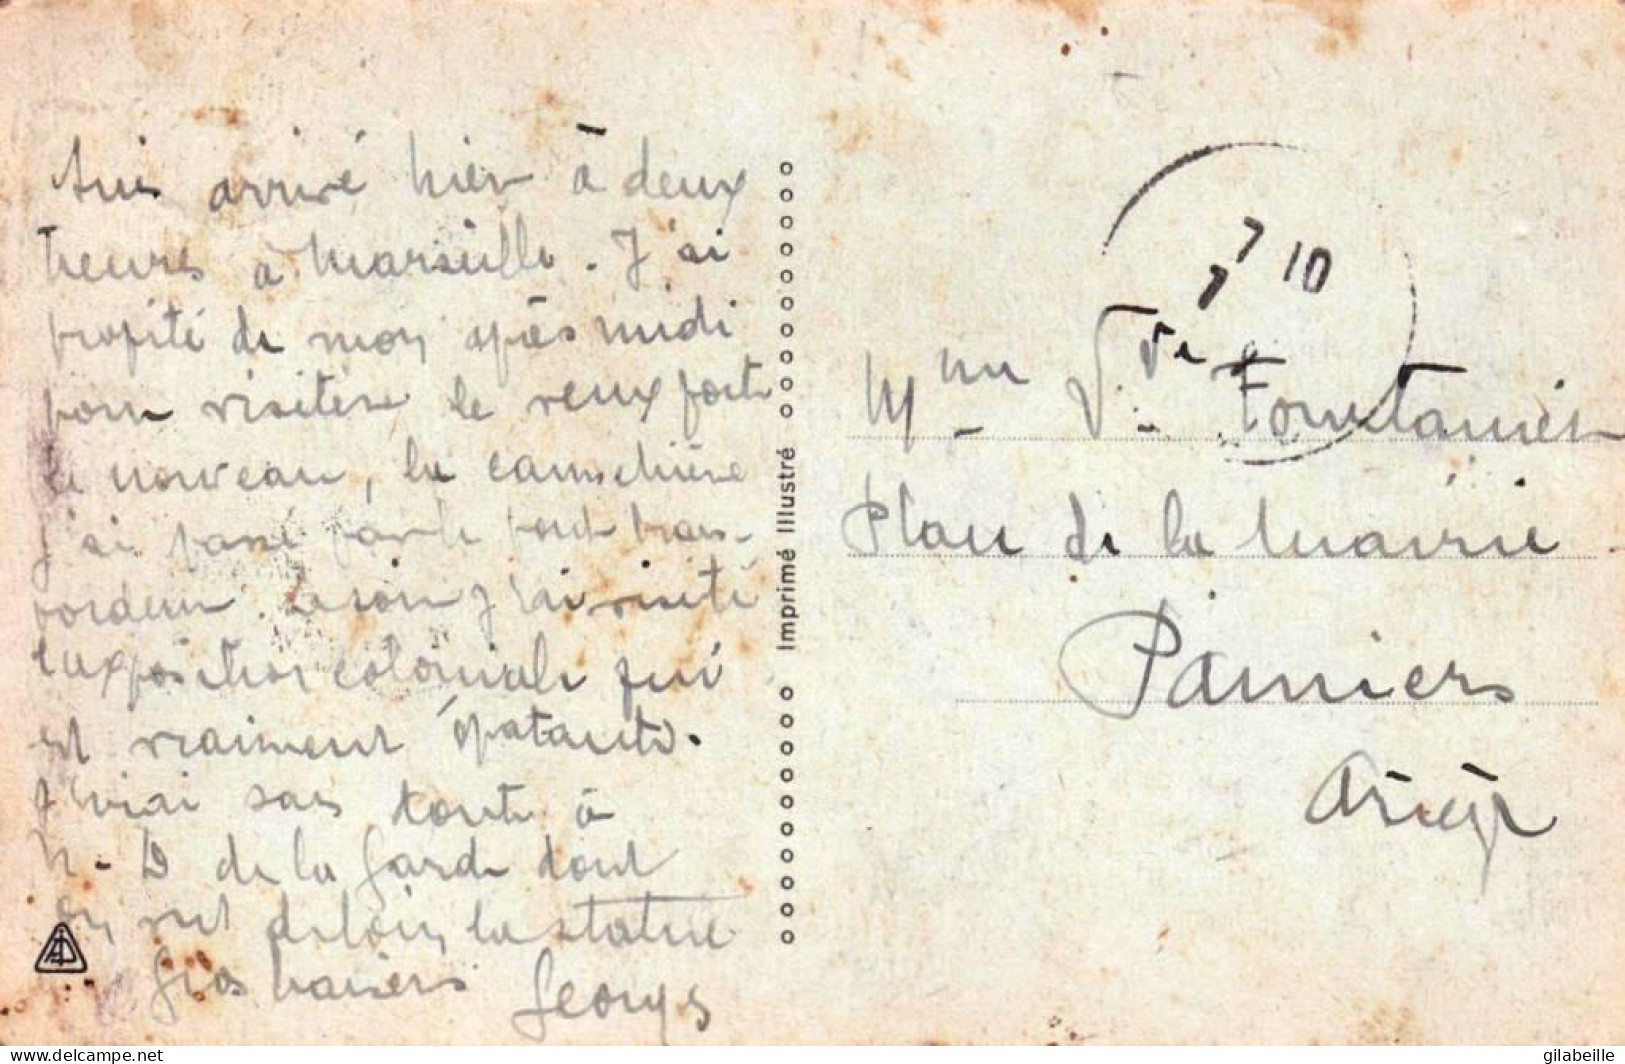 suis arrivé hier à deux
heures à Marseille. J'ai
profité de mon après midi
pour visiter le vieux port
le nouveau, la
j'ai passé par le pont trans-
bordeur. Le soir j'ai visité
l'exposition coloniale qui
est vraiment épatante.
J'irai sans doute à
N. D de la Garde dont
on voit de loin la statue
Gros baisers Georges
Imprimé Illustré
7 10
7
Mme Vve Fontanier
Place de la Mairie
Pamiers
Ariège
delcampe.net
gilabeille